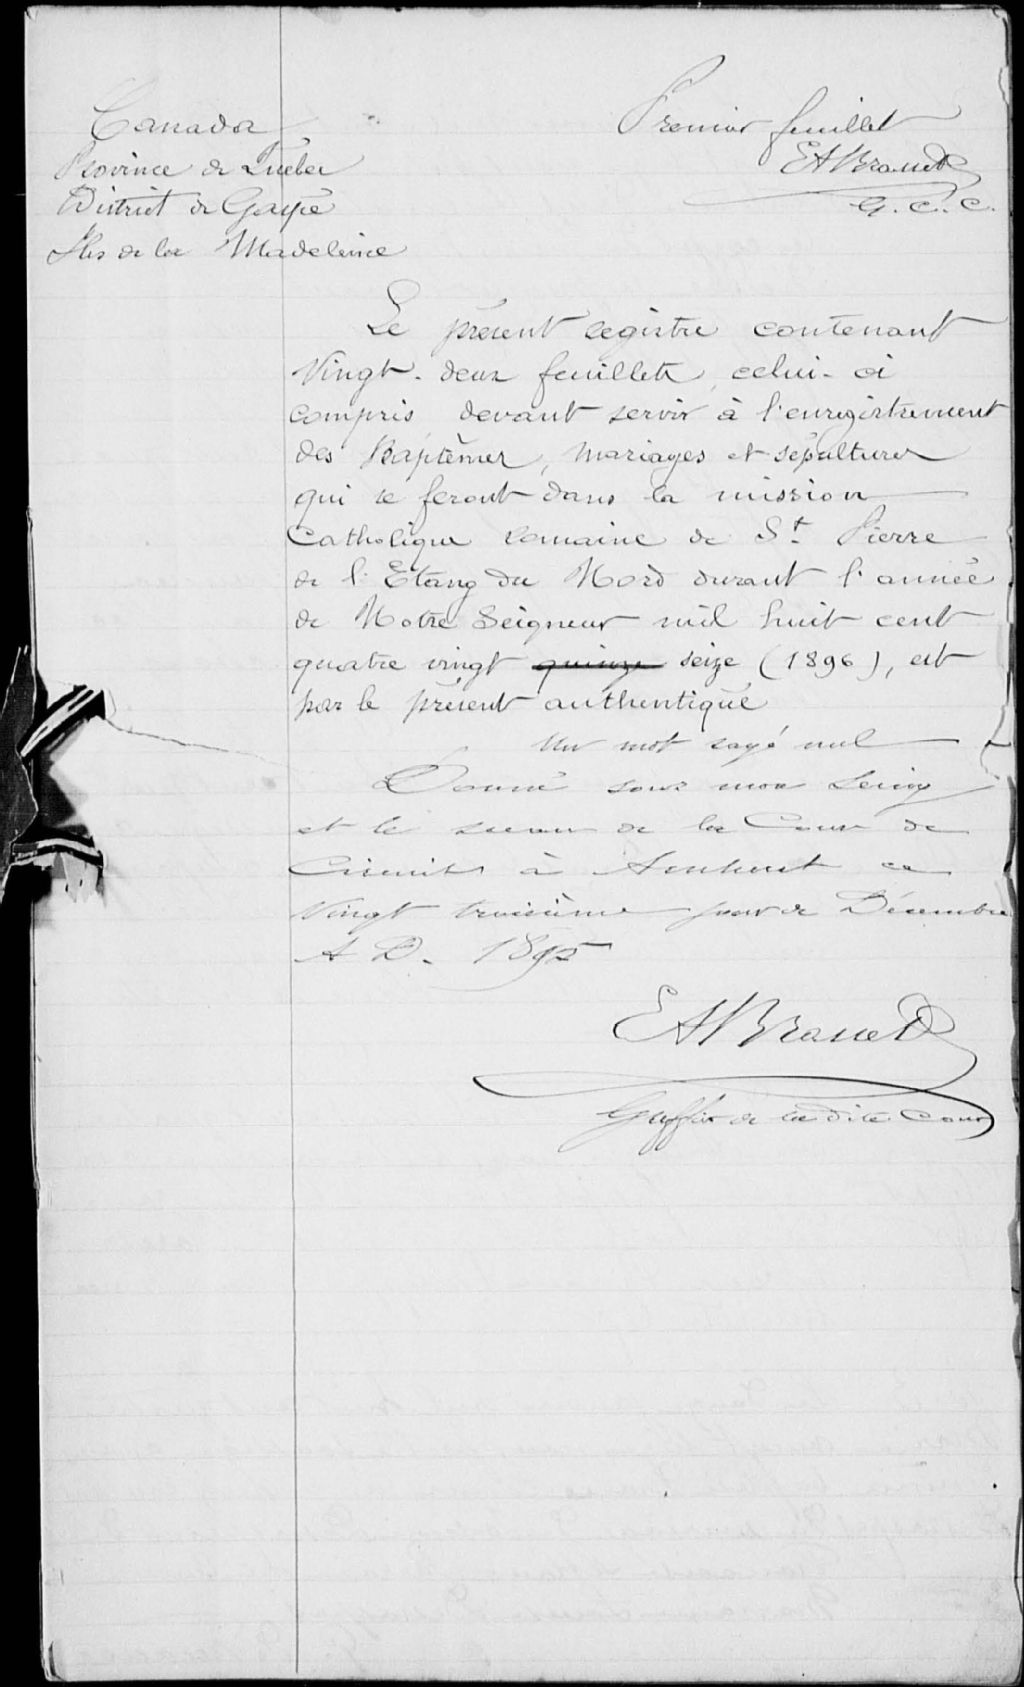 Canada
Province de Québec
District de Gaspé
Iles de la Madeleine
Premier feuillet
E A Brasset
G. C. C.
Le présent registre contenant
Vingt-deux feuillets, celui-ci
compris devant servir à l'enregistrement
des Baptêmes, mariages et sépultures
qui se feront dans la mission
Catholique romaine de St Pierre
de l'Etang du Nord durant l'année
de Notre Seigneur mil huit cent
quatre vingt quinze seize (1896), est
par le présent authentiqué
Un mot rayé nul
Donné sous mon Seing
et le sceau de la Cour de
Circuit à Amherst ce
Vingt troisième jour de Décembre
A D. 1895
E A Brasset
Greffier de la dite Cour